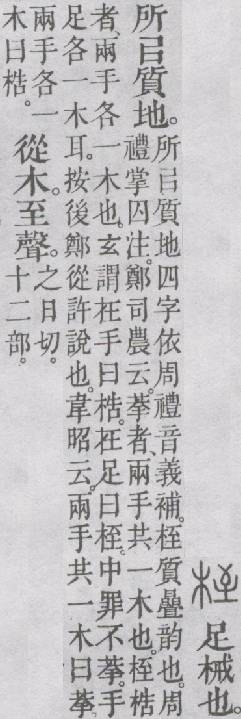 桎 足械也。
所㠯質地。
所㠯質地四字依周禮音義補。桎質疊韵也。周
禮掌囚注。鄭司農云。拲者、兩手共一木也。桎梏
者、兩手各一木也。玄謂在手曰梏。在足曰桎。中罪不拲。手
足各一木耳。按後鄭從許說也。韋昭云。兩手共一木曰拲。
兩手各一
木曰梏。
從木。至聲。
之日切。
十二部。